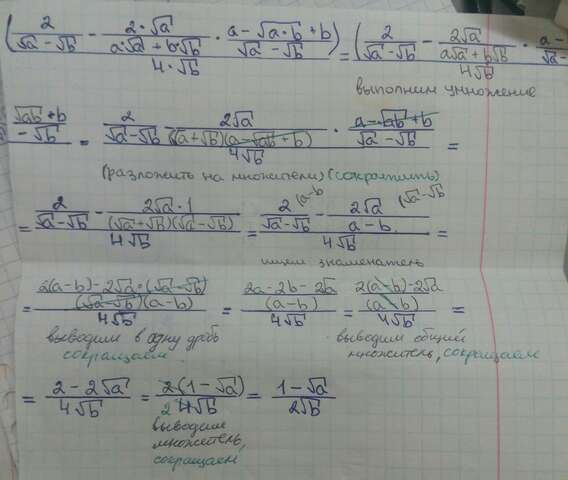 (2/(√a − √b) − (2·√a)/(a·√a + b·√b) · (a − √(a·b) + b)/(√a − √b)) / (4·√b) = (2/(√a − √b) − (2√a)/(a√a + b√b) · (a −)/(√a −)) / (4√b)
выполним умножение
(√ab + b)/(− √b) = (2/(√a − √b) − (2√a)/((√a + √b)(a − √ab + b)) · (a − √ab + b)/(√a − √b)) / (4√b) =
(разложить на множители) (сократить)
= (2/(√a − √b) − (2√a · 1)/((√a + √b)(√a − √b))) / (4√b) = (2 (a−b)/(√a − √b) − 2√a (√a − √b)/(a − b)) / (4√b) =
ищем знаменатель
= ((2(a−b) − 2√a · (√a − √b))/((√a − √b)(a−b))) / (4√b) = ((2a − 2b − 2√a)/(a−b)) / (4√b) = ((2(a−b) − 2√a)/(a−b)) / (4√b) =
выводим в одну дробь
сокращаем
выводим общий
множитель, сокращаем
= (2 − 2√a)/(4√b) = (2·(1 − √a))/(2 4√b) = (1 − √a)/(2√b)
выводим
множитель,
сокращаем